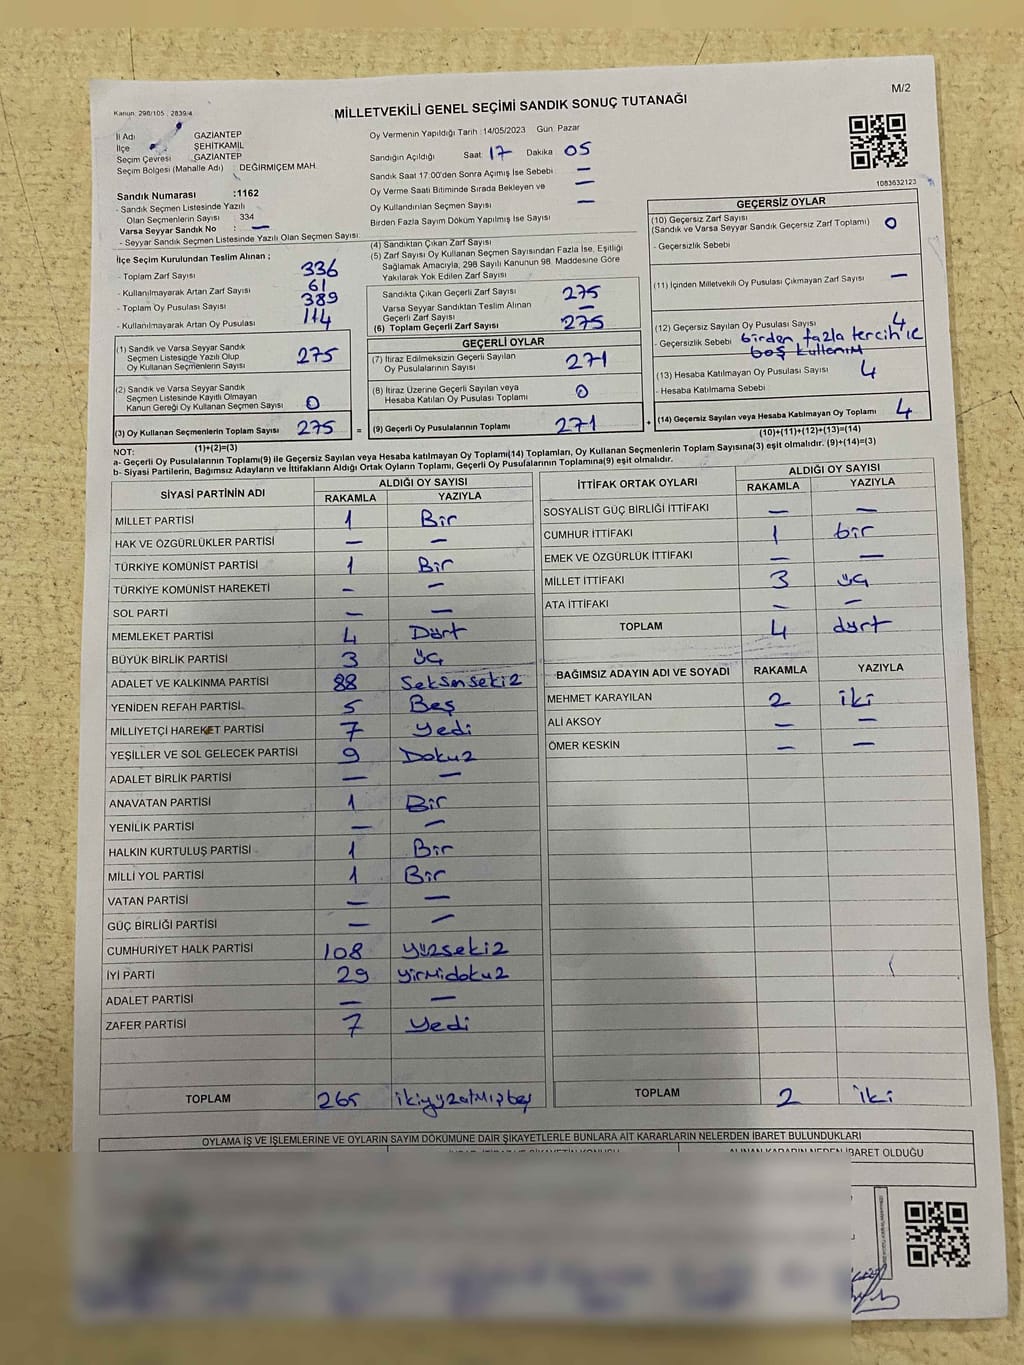 M/2
Kanun: 298/105 , 2839/4
MİLLETVEKİLİ GENEL SEÇİMİ SANDIK SONUÇ TUTANAĞI
İl Adı GAZİANTEP
İlçe ŞEHİTKAMİL
Seçim Çevresi GAZİANTEP
Seçim Bölgesi (Mahalle Adı) : DEĞİRMİÇEM MAH.
Sandık Numarası :1162
- Sandık Seçmen Listesinde Yazılı
Olan Seçmenlerin Sayısı : 334
Varsa Seyyar Sandık No : —
- Seyyar Sandık Seçmen Listesinde Yazılı Olan Seçmen Sayısı:
Oy Vermenin Yapıldığı Tarih :14/05/2023 Gün: Pazar
Sandığın Açıldığı Saat: 17 Dakika 05
Sandık Saat 17:00'den Sonra Açımış İse Sebebi —
Oy Verme Saati Bitiminde Sırada Bekleyen ve —
Oy Kullandırılan Seçmen Sayısı —
Birden Fazla Sayım Döküm Yapılmış İse Sayısı —
1083632123
İlçe Seçim Kurulundan Teslim Alınan ;
- Toplam Zarf Sayısı 336
- Kullanılmayarak Artan Zarf Sayısı 61
- Toplam Oy Pusulası Sayısı 389
- Kullanılmayarak Artan Oy Pusulası 114
(1) Sandık ve Varsa Seyyar Sandık
Seçmen Listesinde Yazılı Olup
Oy Kullanan Seçmen Sayısı 275
(2) Sandık ve Varsa Seyyar Sandık
Seçmen Listesinde Kayıtlı Olmayan
Kanun Gereği Oy Kullanan Seçmen Sayısı 0
(3) Oy Kullanan Seçmenlerin Toplam Sayısı 275
(1)+(2)=(3)
(4) Sandıktan Çıkan Zarf Sayısı
(5) Zarf Sayısı Oy Kullanan Seçmen Sayısından Fazla İse, Eşitliği
Sağlamak Amacıyla, 298 Sayılı Kanunun 98. Maddesine Göre
Yakılarak Yok Edilen Zarf Sayısı
Sandıkta Çıkan Geçerli Zarf Sayısı 275
Varsa Seyyar Sandıktan Teslim Alınan
Geçerli Zarf Sayısı —
(6) Toplam Geçerli Zarf Sayısı 275
GEÇERLİ OYLAR
(7) İtiraz Edilmeksizin Geçerli Sayılan
Oy Pusulalarının Sayısı 271
(8) İtiraz Üzerine Geçerli Sayılan veya
Hesaba Katılan Oy Pusulası Toplamı 0
= (9) Geçerli Oy Pusulalarının Toplamı 271
GEÇERSİZ OYLAR
(10) Geçersiz Zarf Sayısı
(Sandık ve Varsa Seyyar Sandık Geçersiz Zarf Toplamı) 0
- Geçersizlik Sebebi
(11) İçinden Milletvekili Oy Pusulası Çıkmayan Zarf Sayısı —
(12) Geçersiz Sayılan Oy Pusulası Sayısı 4
- Geçersizlik Sebebi birden fazla tercih ile
boş kullanım
(13) Hesaba Katılmayan Oy Pusulası Sayısı 4
- Hesaba Katılmama Sebebi
+ (14) Geçersiz Sayılan veya Hesaba Katılmayan Oy Toplamı 4
(10)+(11)+(12)+(13)=(14)
NOT:
a- Geçerli Oy Pusulalarının Toplamı(9) ile Geçersiz Sayılan veya Hesaba katılmayan Oy Toplamı(14) Toplamları, Oy Kullanan Seçmenlerin Toplam Sayısına(3) eşit olmalıdır. (9)+(14)=(3)
b- Siyasi Partilerin, Bağımsız Adayların ve İttifakların Aldığı Ortak Oyların Toplamı, Geçerli Oy Pusulalarının Toplamına(9) eşit olmalıdır.
SİYASİ PARTİNİN ADI ALDIĞI OY SAYISI
RAKAMLA YAZIYLA
MİLLET PARTİSİ 1 Bir
HAK VE ÖZGÜRLÜKLER PARTİSİ — —
TÜRKİYE KOMÜNİST PARTİSİ 1 Bir
TÜRKİYE KOMÜNİST HAREKETİ - —
SOL PARTİ — —
MEMLEKET PARTİSİ 4 Dört
BÜYÜK BİRLİK PARTİSİ 3 üç
ADALET VE KALKINMA PARTİSİ 88 Seksensekiz
YENİDEN REFAH PARTİSİ 5 Beş
MİLLİYETÇİ HAREKET PARTİSİ 7 Yedi
YEŞİLLER VE SOL GELECEK PARTİSİ 9 Dokuz
ADALET BİRLİK PARTİSİ — —
ANAVATAN PARTİSİ 1 Bir
YENİLİK PARTİSİ — —
HALKIN KURTULUŞ PARTİSİ 1 Bir
MİLLİ YOL PARTİSİ 1 Bir
VATAN PARTİSİ — —
GÜÇ BİRLİĞİ PARTİSİ — —
CUMHURİYET HALK PARTİSİ 108 yüzsekiz
İYİ PARTİ 29 yirmidokuz
ADALET PARTİSİ — —
ZAFER PARTİSİ 7 Yedi
TOPLAM 265 ikiyüzatmışbeş
İTTİFAK ORTAK OYLARI ALDIĞI OY SAYISI
RAKAMLA YAZIYLA
SOSYALİST GÜÇ BİRLİĞİ İTTİFAKI — —
CUMHUR İTTİFAKI 1 bir
EMEK VE ÖZGÜRLÜK İTTİFAKI — —
MİLLET İTTİFAKI 3 üç
ATA İTTİFAKI — —
TOPLAM 4 dört
BAĞIMSIZ ADAYIN ADI VE SOYADI RAKAMLA YAZIYLA
MEHMET KARAYILAN 2 iki
ALİ AKSOY — —
ÖMER KESKİN — —
TOPLAM 2 iki
OYLAMA İŞ VE İŞLEMLERİNE VE OYLARIN SAYIM DÖKÜMÜNE DAİR ŞİKAYETLERLE BUNLARA AİT KARARLARIN NELERDEN İBARET BULUNDUKLARI
ALINAN KARARIN NEDEN İBARET OLDUĞU